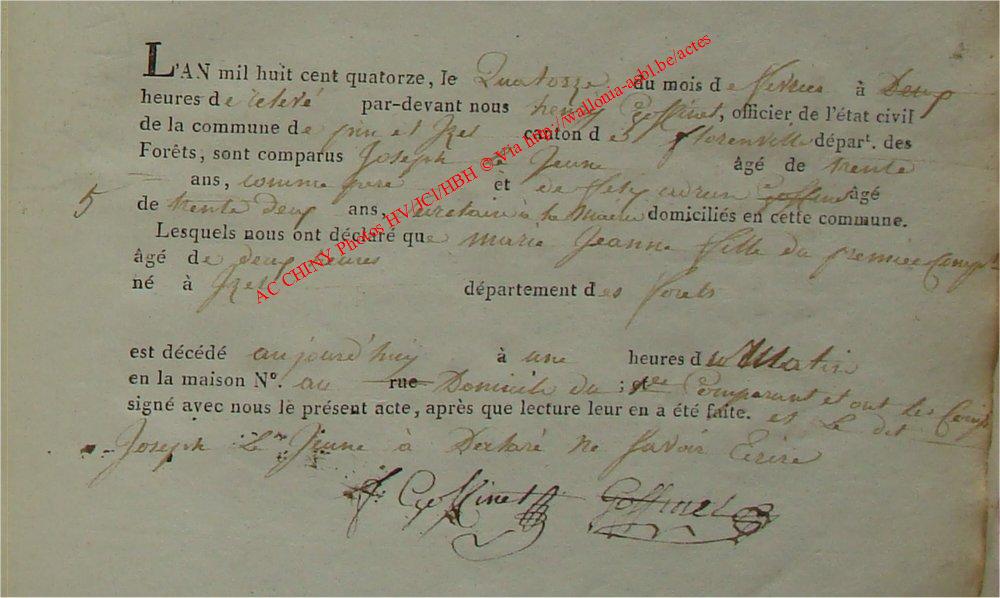 L'AN mil huit cent quatorze, le Quatorze du mois de fevrier à Deux
heures de relevé par-devant nous henry Goffinet, officier de l'état civil
de la commune de pin et Izel canton de florenville départ. des
Forêts, sont comparus Joseph le Jeune âgé de trente
ans, comme pere et de Goffinet âgé
5
de trente deux ans, secretaire à la Mairie domiciliés en cette commune.
Lesquels nous ont déclaré que marie Jeanne fille du premier Comp
âgé de deux heures
né à Izel département des forets
est décédé aujourd'huy à une heures du Matin
en la maison N°. au rue Domicile du Comparant et ont les Comp
signé avec nous le présent acte, après que lecture leur en a été faite. et Le dit
Joseph Le Jeune à Declaré ne savoir Ecrire
Goffinet Goffinet
AC CHINY Photos HV/JCl/HBH © Via http://wallonia-asbl.be/actes